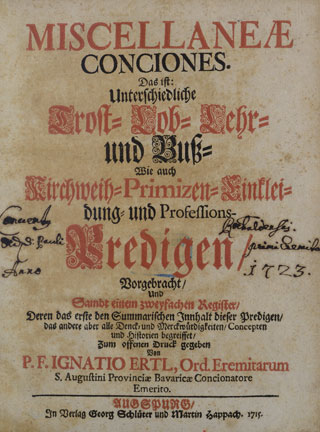 MISCELLANEÆ
CONCIONES.
Das ist:
Unterschiedliche
Trost- Lob- Lehr-
und Buß-
Wie auch
Kirchweih- Primizen- Einklei-
dung- und Professions-
Predigen
Anno
1723.
Vorgebracht/
Und
Sambt einem zweyfachen Register/
Deren das erste den Summarischen Innhalt dieser Predigen/
das andere aber alle Denck- und Merckwürdigkeiten/ Concepten
und Historien begreiffet/
Zum offenen Druck gegeben
Von
P. F. IGNATIO ERTL, Ord. Eremitarum
S. Augustini Provinciæ Bavaricæ Concionatore
Emerito.
AUGSPURG/
In Verlag Georg Schlüter und Martin Happach. 1715.